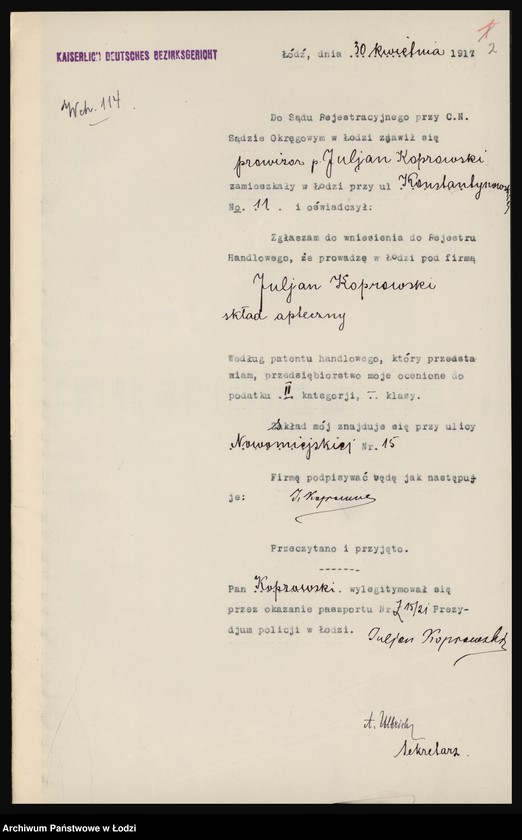 KAISERLICH DEUTSCHES BEZIRKSGERICHT
Łódź, dnia 30 kwietnia 1917
1
2
Wch. 114
Do Sądu Rejestracyjnego przy C.N.
Sądzie Okręgowym w Łodzi zjawił się
prowizor p. Juljan Koprowski
zamieszkały w Łodzi przy ul Konstantynowskiej
No. 11. i oświadczył:
Zgłaszam do wniesienia do Rejestru
Handlowego, że prowadzę w Łodzi pod firmą
Juljan Koprowski
skład apteczny
Według patentu handlowego, który przedsta
wiam, przedsiębiorstwo moje ocenione do
podatku II kategorji, – klasy.
Zakład mój znajduje się przy ulicy
Nowomiejskiej Nr. 15
Firmę podpisywać będę jak następuj
je: J. Koprowski
Przeczytano i przyjęto.
-------
Pan Koprowski. wylegitymował się
przez okazanie paszportu Nr 15/21 Prezy-
djum policji w Łodzi.
Juljan Koprowski
A. Ulbrich
Sekretarz.
Archiwum Państwowe w Łodzi